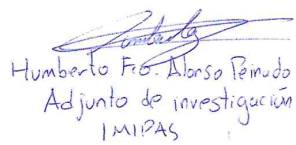 Humberto Fco. Alonso Peinudo
Adjunto de investigación
IMIPAS